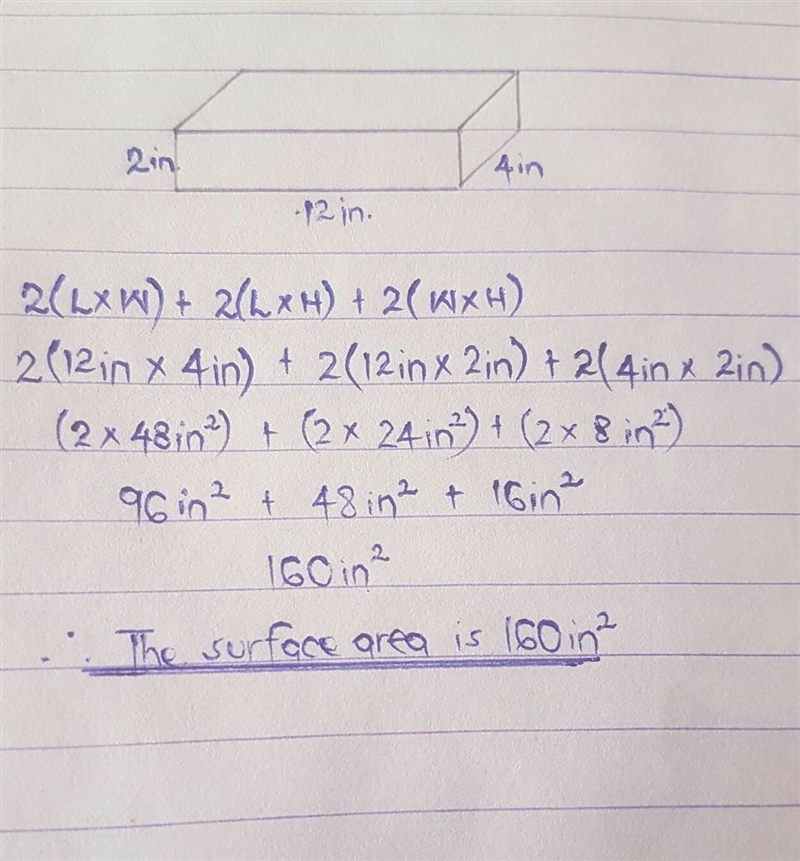 2in. 4in
12in.
2(L×W) + 2(L×H) + 2(W×H)
2(12in × 4in) + 2(12in × 2in) + 2(4in × 2in)
(2 × 48in²) + (2 × 24in²) + (2 × 8in²)
96in² + 48in² + 16in²
160in²
∴ The surface area is 160in²